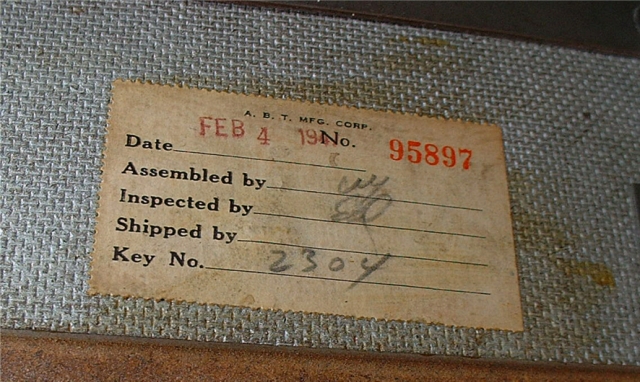 A. B. T. MFG. CORP.
Date FEB 4 No. 95897
Assembled by
Inspected by
Shipped by
Key No. 2304